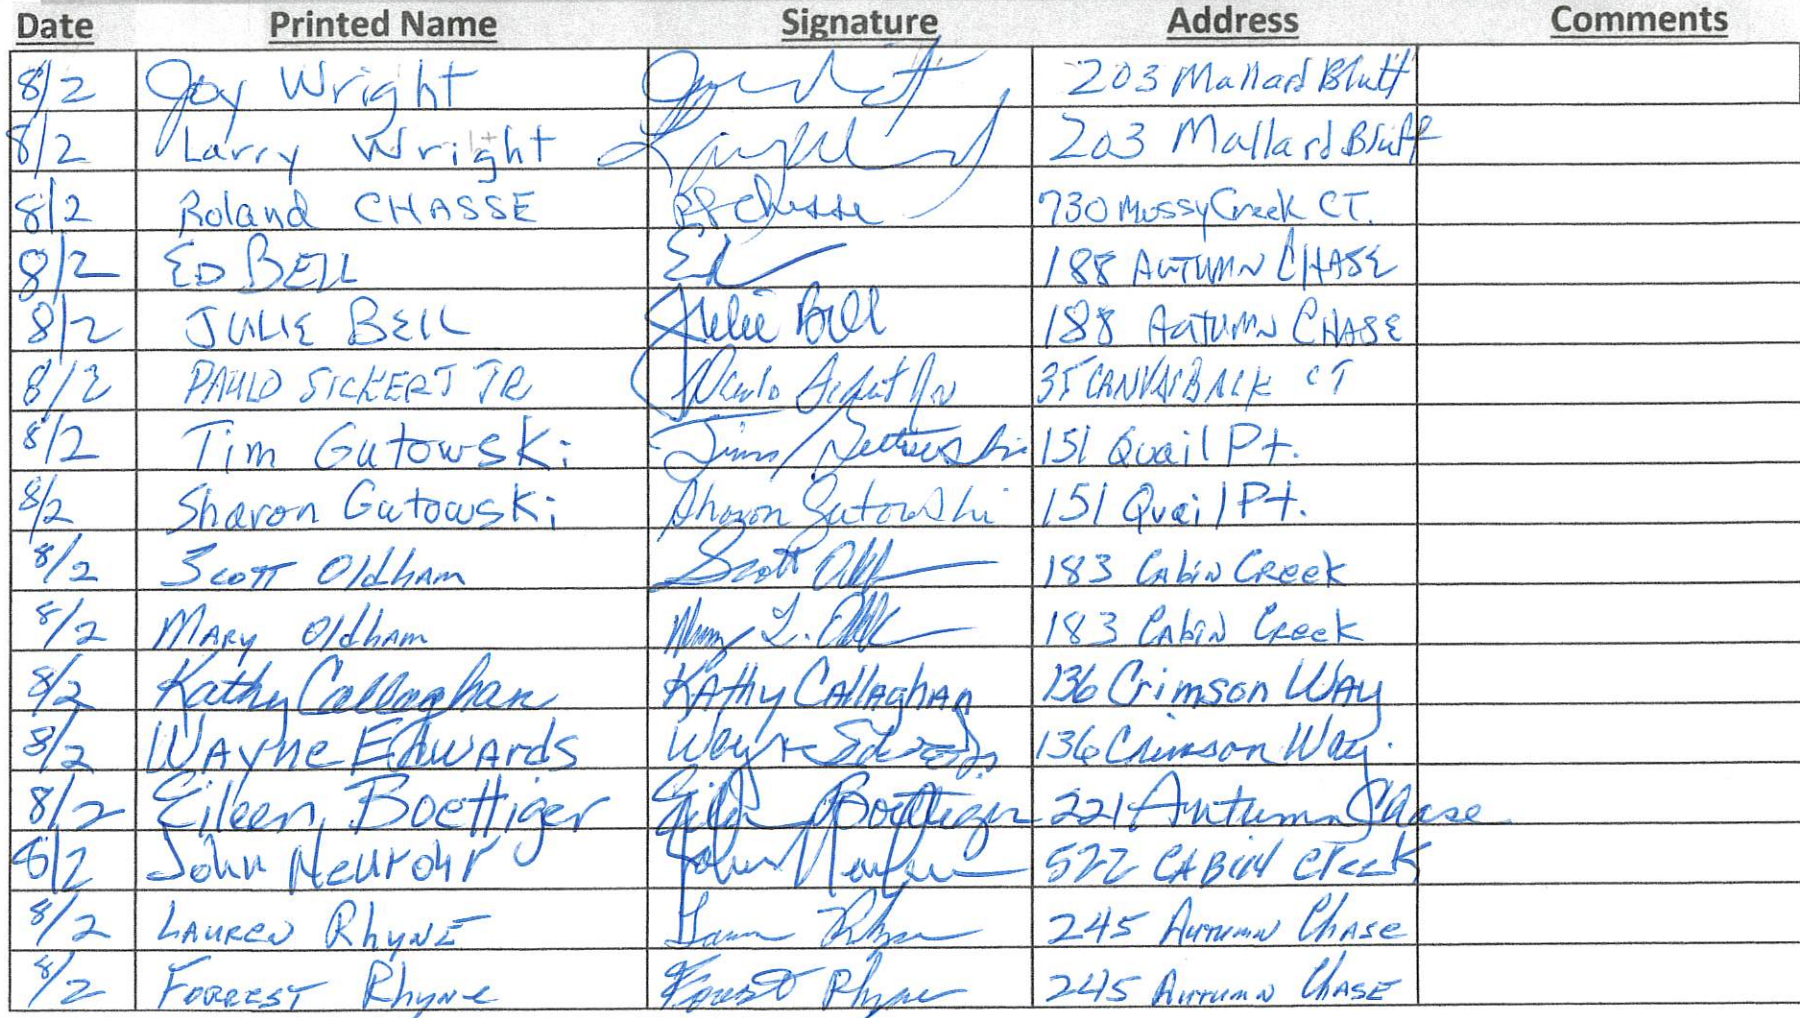 Date Printed Name Signature Address Comments
8/2 Joy Wright 203 Mallard Bluff
8/2 Larry Wright 203 Mallard Bluff
8/2 Roland CHASSE RP Chasse 730 Mossy Creek CT.
8/2 ED BELL Ed 188 AUTUMN CHASE
8/2 JULIE BELL Julie Bell 188 AUTUMN CHASE
8/2 PAULO SICKERT JR Paulo Sickert Jr 35 CANVASBACK CT
8/2 Tim Gutowski Tim Gutowski 151 Quail Pt.
8/2 Sharon Gutowski Sharon Gutowski 151 Quail Pt.
8/2 Scott Oldham Scott 183 Cabin Creek
8/2 MARY Oldham Mary L. 183 Cabin Creek
8/2 Kathy Callaghan KAthy CAllAghAn 136 Crimson WAy
8/2 WAyne EdwArds Wayne Edwards 136 Crimson Way.
8/2 Eileen Boettiger Eileen Boettiger 221 Autumn Chase
8/2 John Neurohr John 522 CABIN CreeK
8/2 LAUREN RhyNE Lauren Rhyne 245 Autumn ChAse
8/2 FORREST RhyNe Forrest Rhyne 245 Autumn ChASE